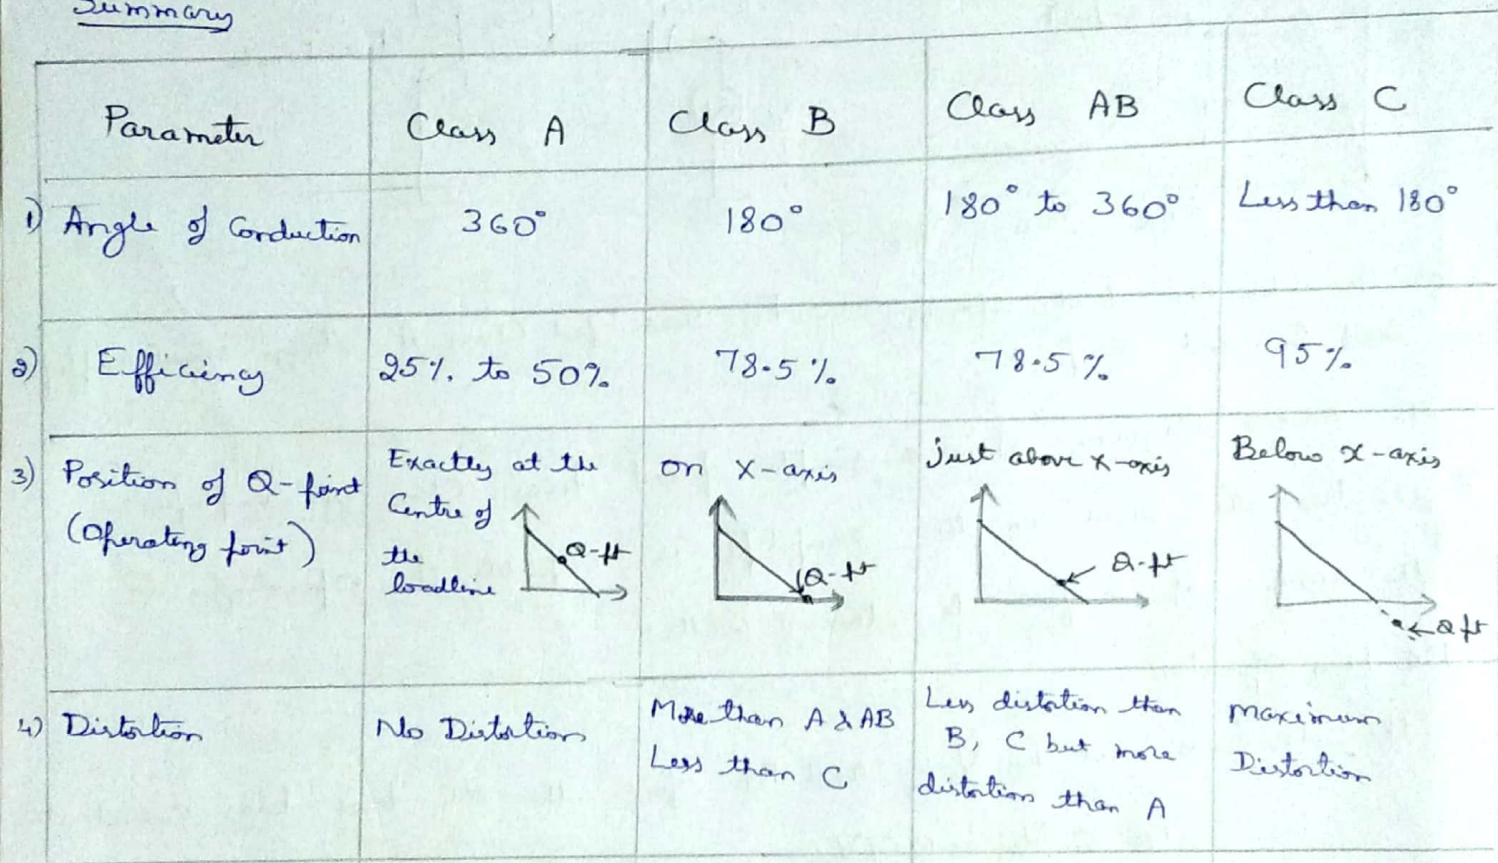 Summary
Parameter Class A Class B Class AB Class C
1) Angle of Conduction 360° 180° 180° to 360° Less than 180°
2) Efficiency 25% to 50% 78.5% 78.5% 95%
3) Position of Q-point
(Operating point)
Exactly at the
Centre of
the
loadline
Q-pt
on X-axis
Q-pt
Just above x-axis
Q-pt
Below x-axis
Q pt
4) Distortion
No Distortion
More than A & AB
Less than C
Less distortion than
B, C but more
distortion than A
Maximum
Distortion